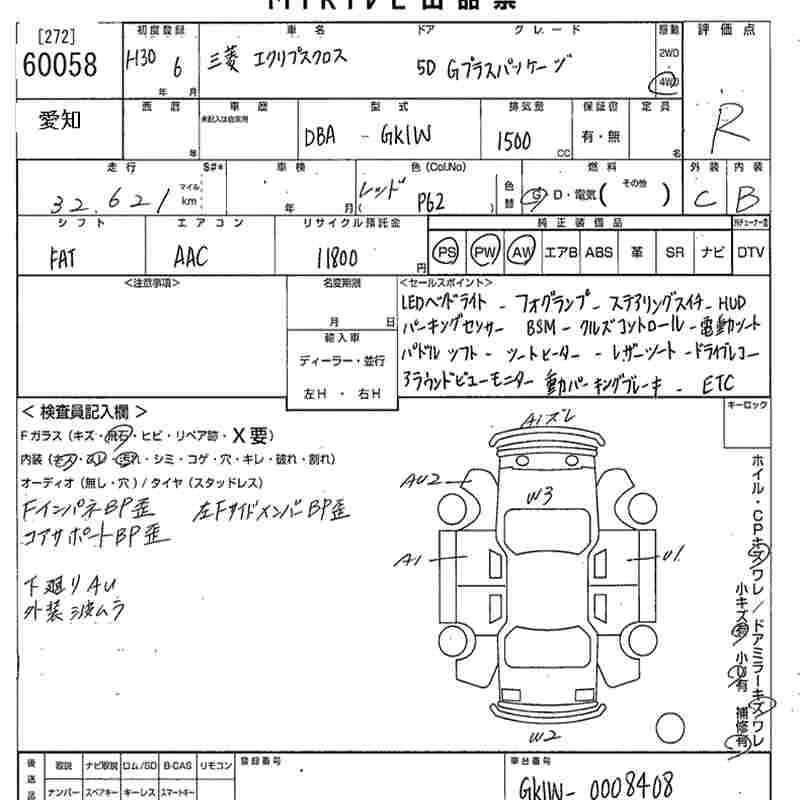 MIRIVE出品票
[272] 初度登録 車名 ドア グレード 駆動 評価点
60058 H30 6 三菱 エクリプスクロス 5D Gプラスパッケージ 2WD
年 月 4WD
愛知 西暦 車歴 型式 排気量 保証書 定員 R
未記入は自家用
DBA - GK1W 1500 有・無
年 CC 名
走行 S#* 車検 色(Col.No) 燃料 外装 内装
32,621 マイル km 年 月 レッド ( P62 ) 色替 G・D・電気 ( その他 ) C B
シフト エアコン リサイクル預託金 純正装備品
FAT AAC 11800 円 PS PW AW エアB ABS 革 SR ナビ DTV
<注意事項> 名変期限 <セールスポイント>
月 日
輸入車
ディーラー・並行
左H ・ 右H
LEDヘッドライト - フォグランプ - ステアリングスイチ - HUD
パーキングセンサー BSM - クルズコントロール - 電動シート
パドルシフト - シートヒーター - レザーシート - ドライブレコー
アラウンドビューモニター 動パーキングブレーキ - ETC
キーロック
< 検査員記入欄 >
Fガラス(キズ・飛石・ヒビ・リペア跡・X要)
内装(スレ・汚れ・シミ・コゲ・穴・キレ・破れ・割れ)
オーディオ(無し・穴)/タイヤ(スタッドレス)
FインパネBP歪 左FサイドメンバーBP歪
コアサポートBP歪
下廻りAU
外装 波ムラ
A1ズレ
AU2
W3
A1
U1
W2
ホイル・CPキズワレ/ドアミラーキズワレ
小キズ有 小凹有 補修有
後送品 取説 ナビ取説 ロム/SD B-CAS リモコン 登録番号 車台番号
ナンバー スペアキー キーレス スマートキー GK1W- 0008408